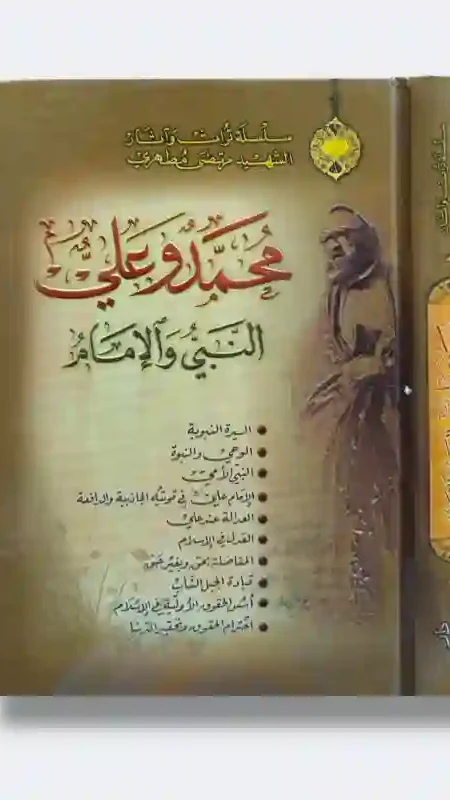 سلسلة تراث وآثار
الشهيد مرتضى مطهري
محمد وعلي
النبي والإمام
السيرة النبوية
الوحي والنبوة
النبي الأمي
الإمام علي في قوتيه الجاذبية والدافعة
العدالة عند علي
العدل في الإسلام
المفاضلة بحق وبغير حق
قيادة الجيل الشاب
أسس الحقوق الأولية في الإسلام
احترام الحقوق وتحقير الدنيا
دار